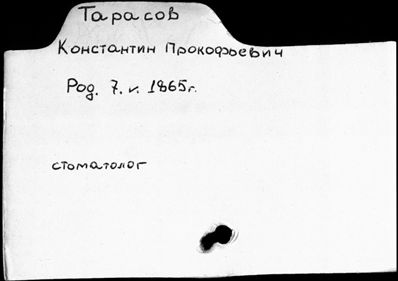 Тарасов
Константин Прокофьевич
Род. 7. v. 1865г.
стоматолог